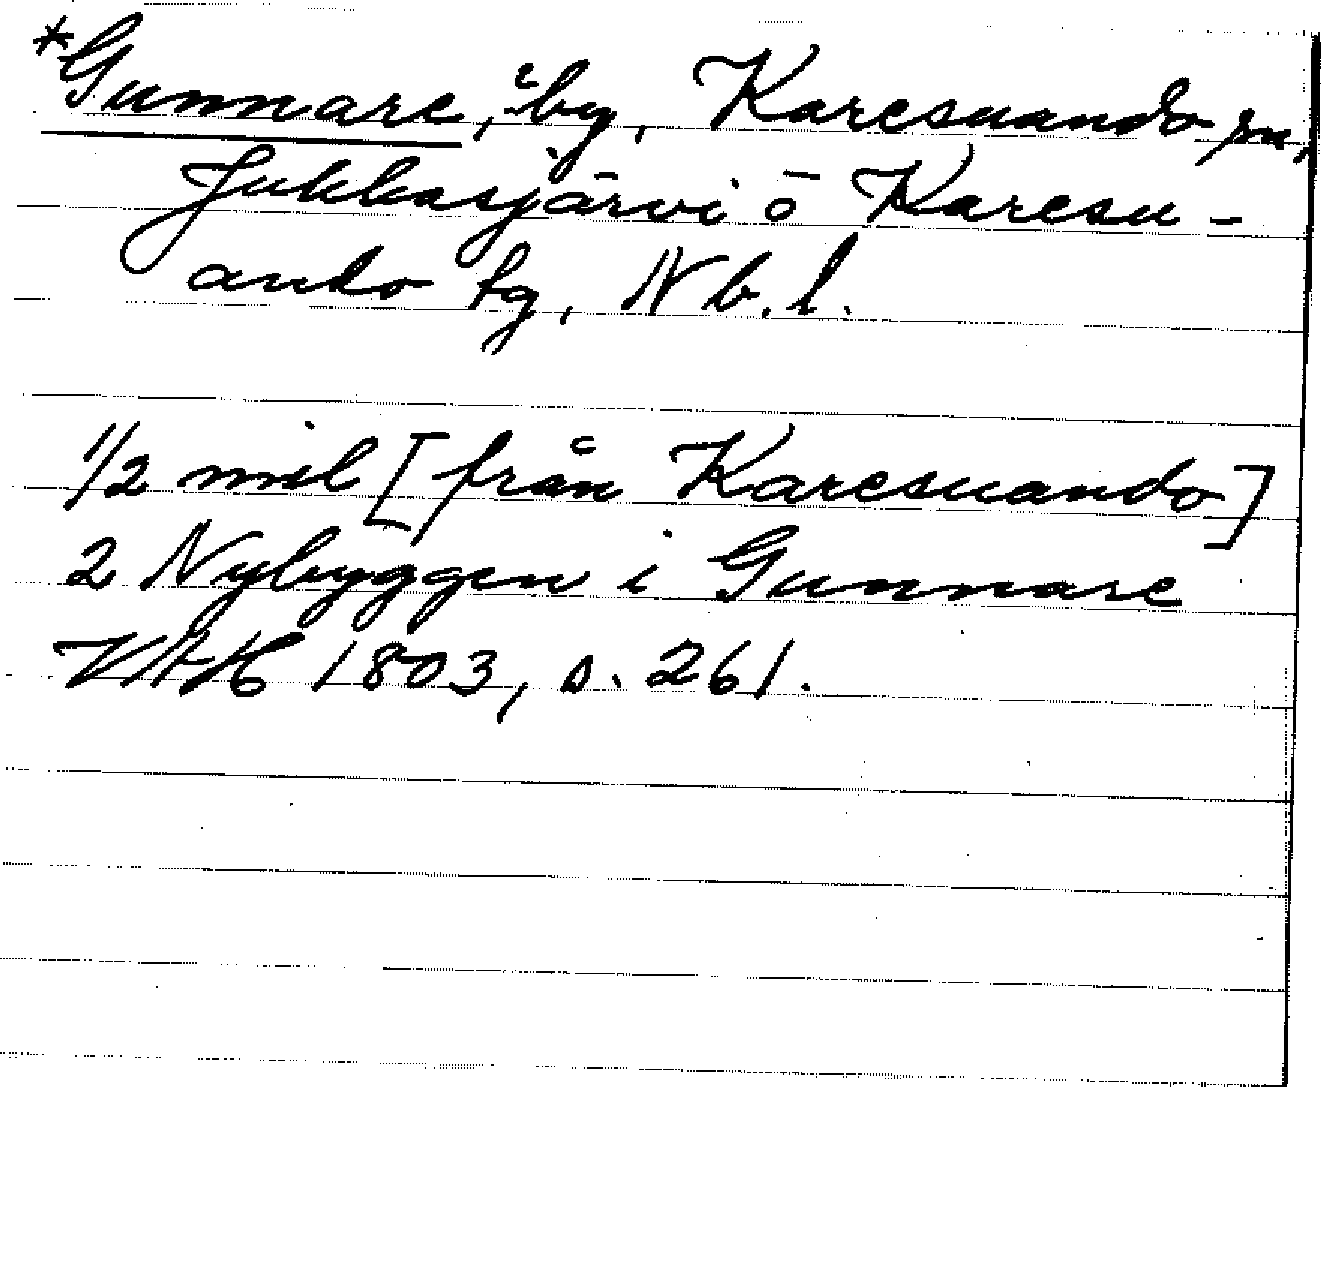 *Gunnare, by, Karesuando sn,
Jukkasjärvi o Karesu-
ando tg, Nb. l.
1/2 mil [från Karesuando]
2 Nybyggen i Gunnare
VAH 1803, s. 261.